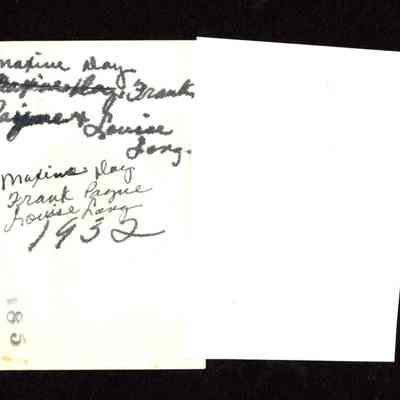 Maxine Day
Maxine Day, Frank
Payne & Louise
Long.
Maxine Day
Frank Payne
Louise Long
1932
185